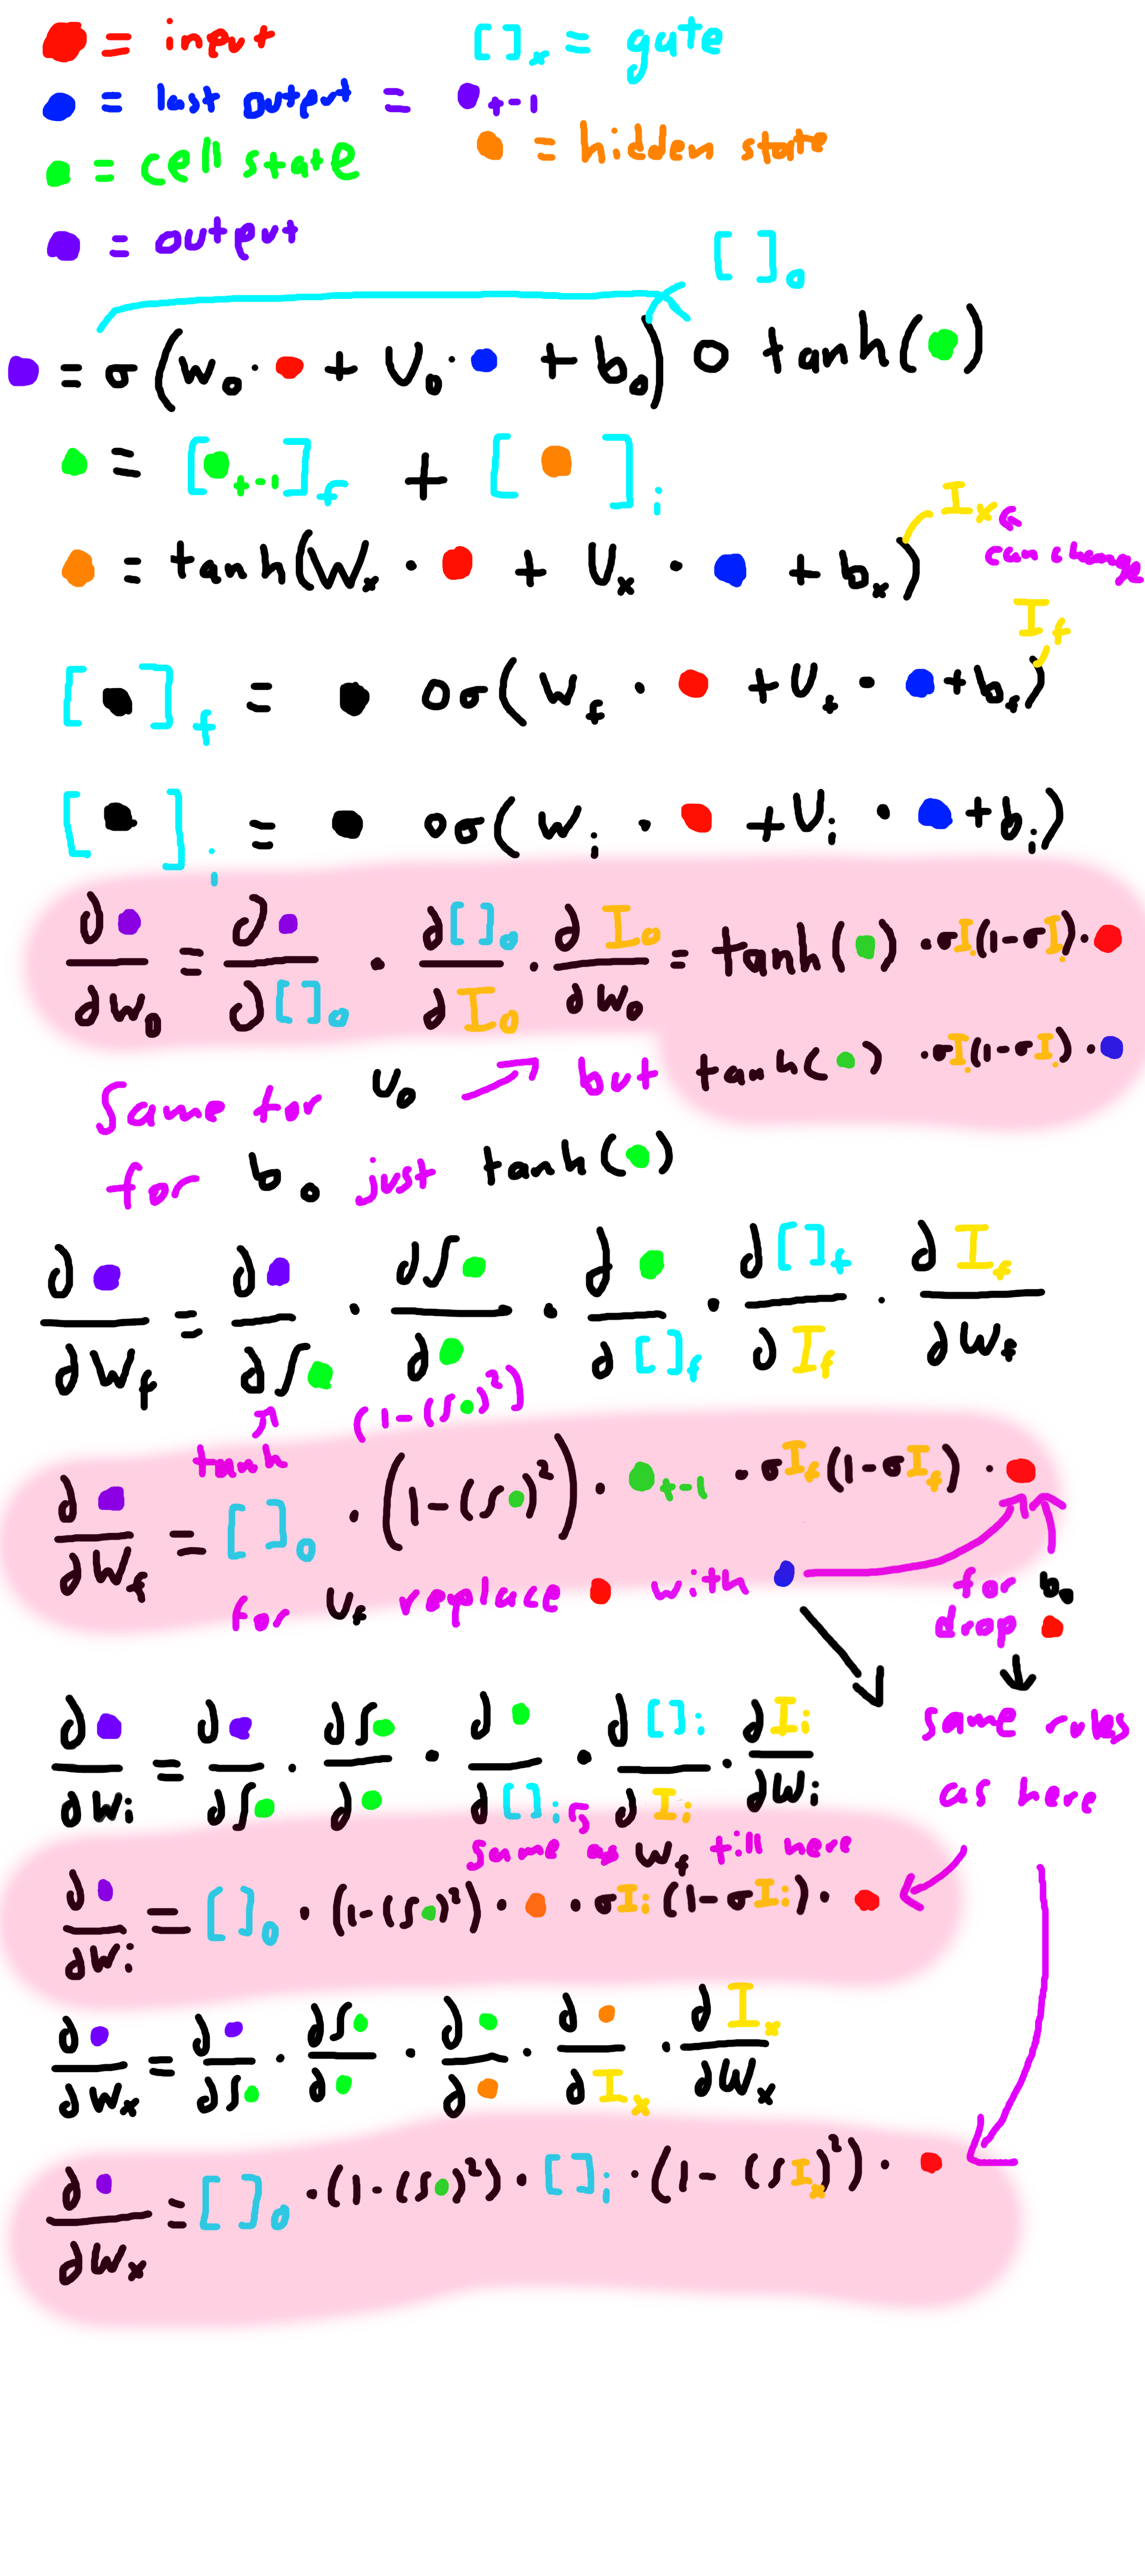 ● = input
[ ]x = gate
● = last output = ●t-1
● = cell state
● = hidden state
● = output
[ ]o
● = σ(Wo · ● + Uo · ● + bo) ○ tanh(●)
● = [●t-1]f + [●]i
Ix
can change
● = tanh(Wx · ● + Ux · ● + bx)
If
[●]f = ● ○ σ(Wf · ● + Uf · ● + bf)
[●]i = ● ○ σ(Wi · ● + Ui · ● + bi)
∂●/∂Wo = ∂●/∂[ ]o · ∂[ ]o/∂Io · ∂Io/∂Wo = tanh(●) · σI(1-σI) · ●
same for Uo → but tanh(●) · σI(1-σI) · ●
for bo just tanh(●)
∂●/∂Wf = ∂●/∂∫● · ∂∫●/∂● · ∂●/∂[ ]f · ∂[ ]f/∂If · ∂If/∂Wf
tanh
(1-(∫●)²)
∂●/∂Wf = [ ]o · (1-(∫●)²) · ●t-1 · σIf(1-σIf) · ●
for Uf replace ● with ●
for bo
drop ●
same rules
as here
∂●/∂Wi = ∂●/∂∫● · ∂∫●/∂● · ∂●/∂[ ]i · ∂[ ]i/∂Ii · ∂Ii/∂Wi
same as Wf till here
∂●/∂Wi = [ ]o · (1-(∫●)²) · ● · σIi(1-σIi) · ●
∂●/∂Wx = ∂●/∂∫● · ∂∫●/∂● · ∂●/∂● · ∂●/∂Ix · ∂Ix/∂Wx
∂●/∂Wx = [ ]o · (1-(∫●)²) · [ ]i · (1-(∫Ix)²) · ●